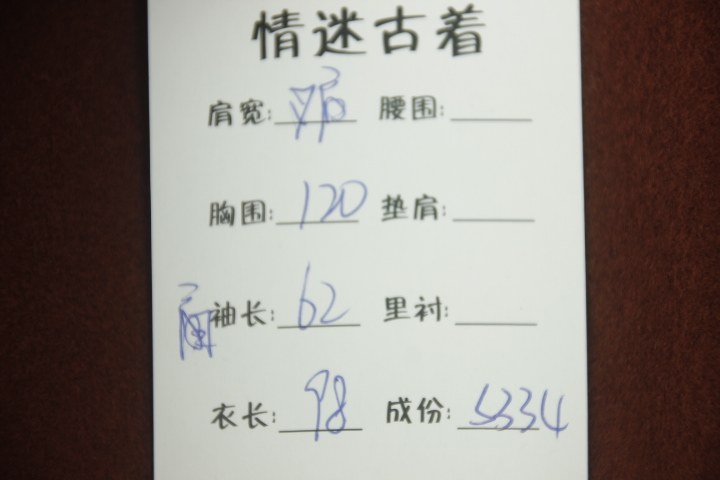 情迷古着
肩宽: 双肩 腰围:
胸围: 120 垫肩:
肩袖长: 62 里衬:
衣长: 98 成份: S334